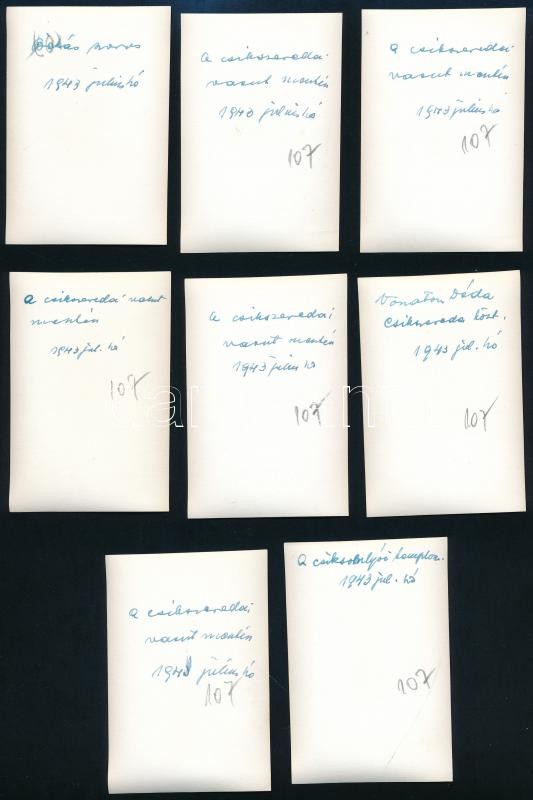 szoros
1943 júliushó
A csikszeredai
vasut mentén
1943 júliushó
107
A csikszeredai
vasut mentén
1943 júliushó
107
A csikszeredai vasut
mentén
1943 júl. hó
107
A csikszeredai
vasut mentén
1943 július hó
107
Vonaton Déda
Csikszereda közt.
1943 júl. hó
107
A csikszeredai
vasut mentén
1943 júliushó
107
A csiksomlyói templom.
1943 júl. hó
107